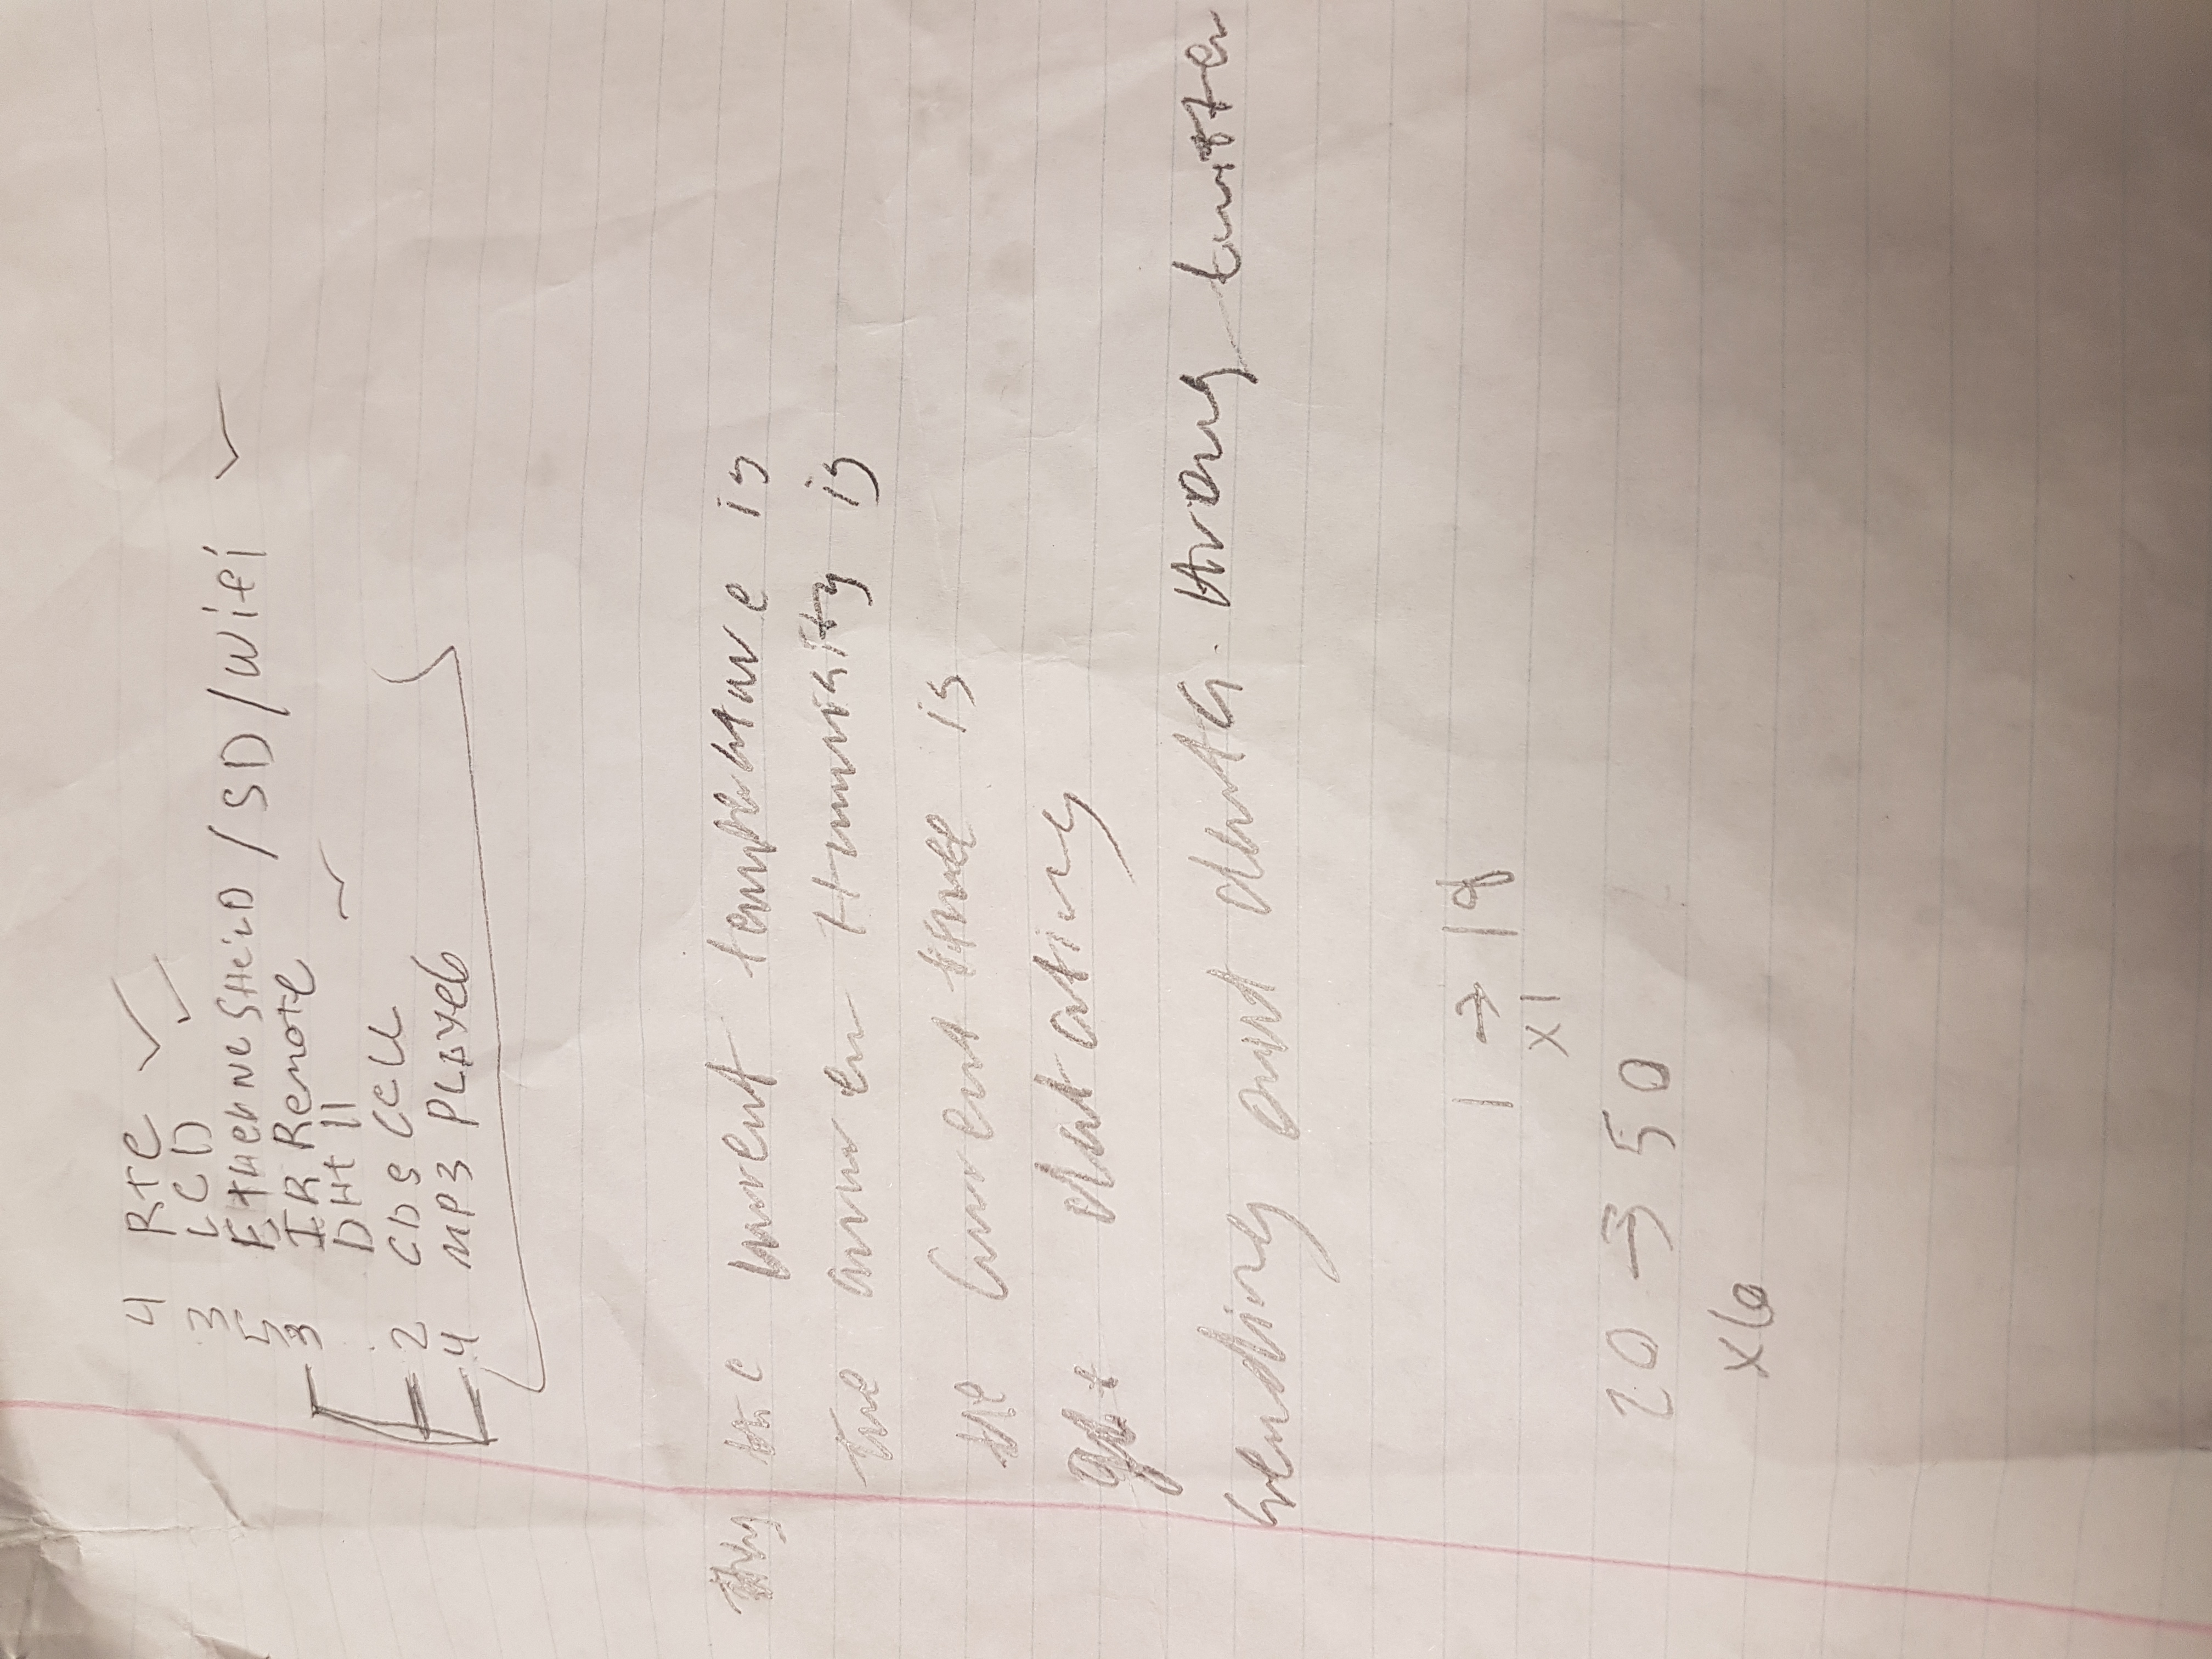 4 RTC ✓
3 LCD ✓
5 ETHERNE SHEILD / SD / Wifi ✓
3 IR Remote
DHt 11 ✓
2 CDS CELL
4 MP3 PLAYER
the current temperature is
The curren Humidity is
the Current time is
get
sending out data throug twitter
1 → 18
x1
20 → 50
x6